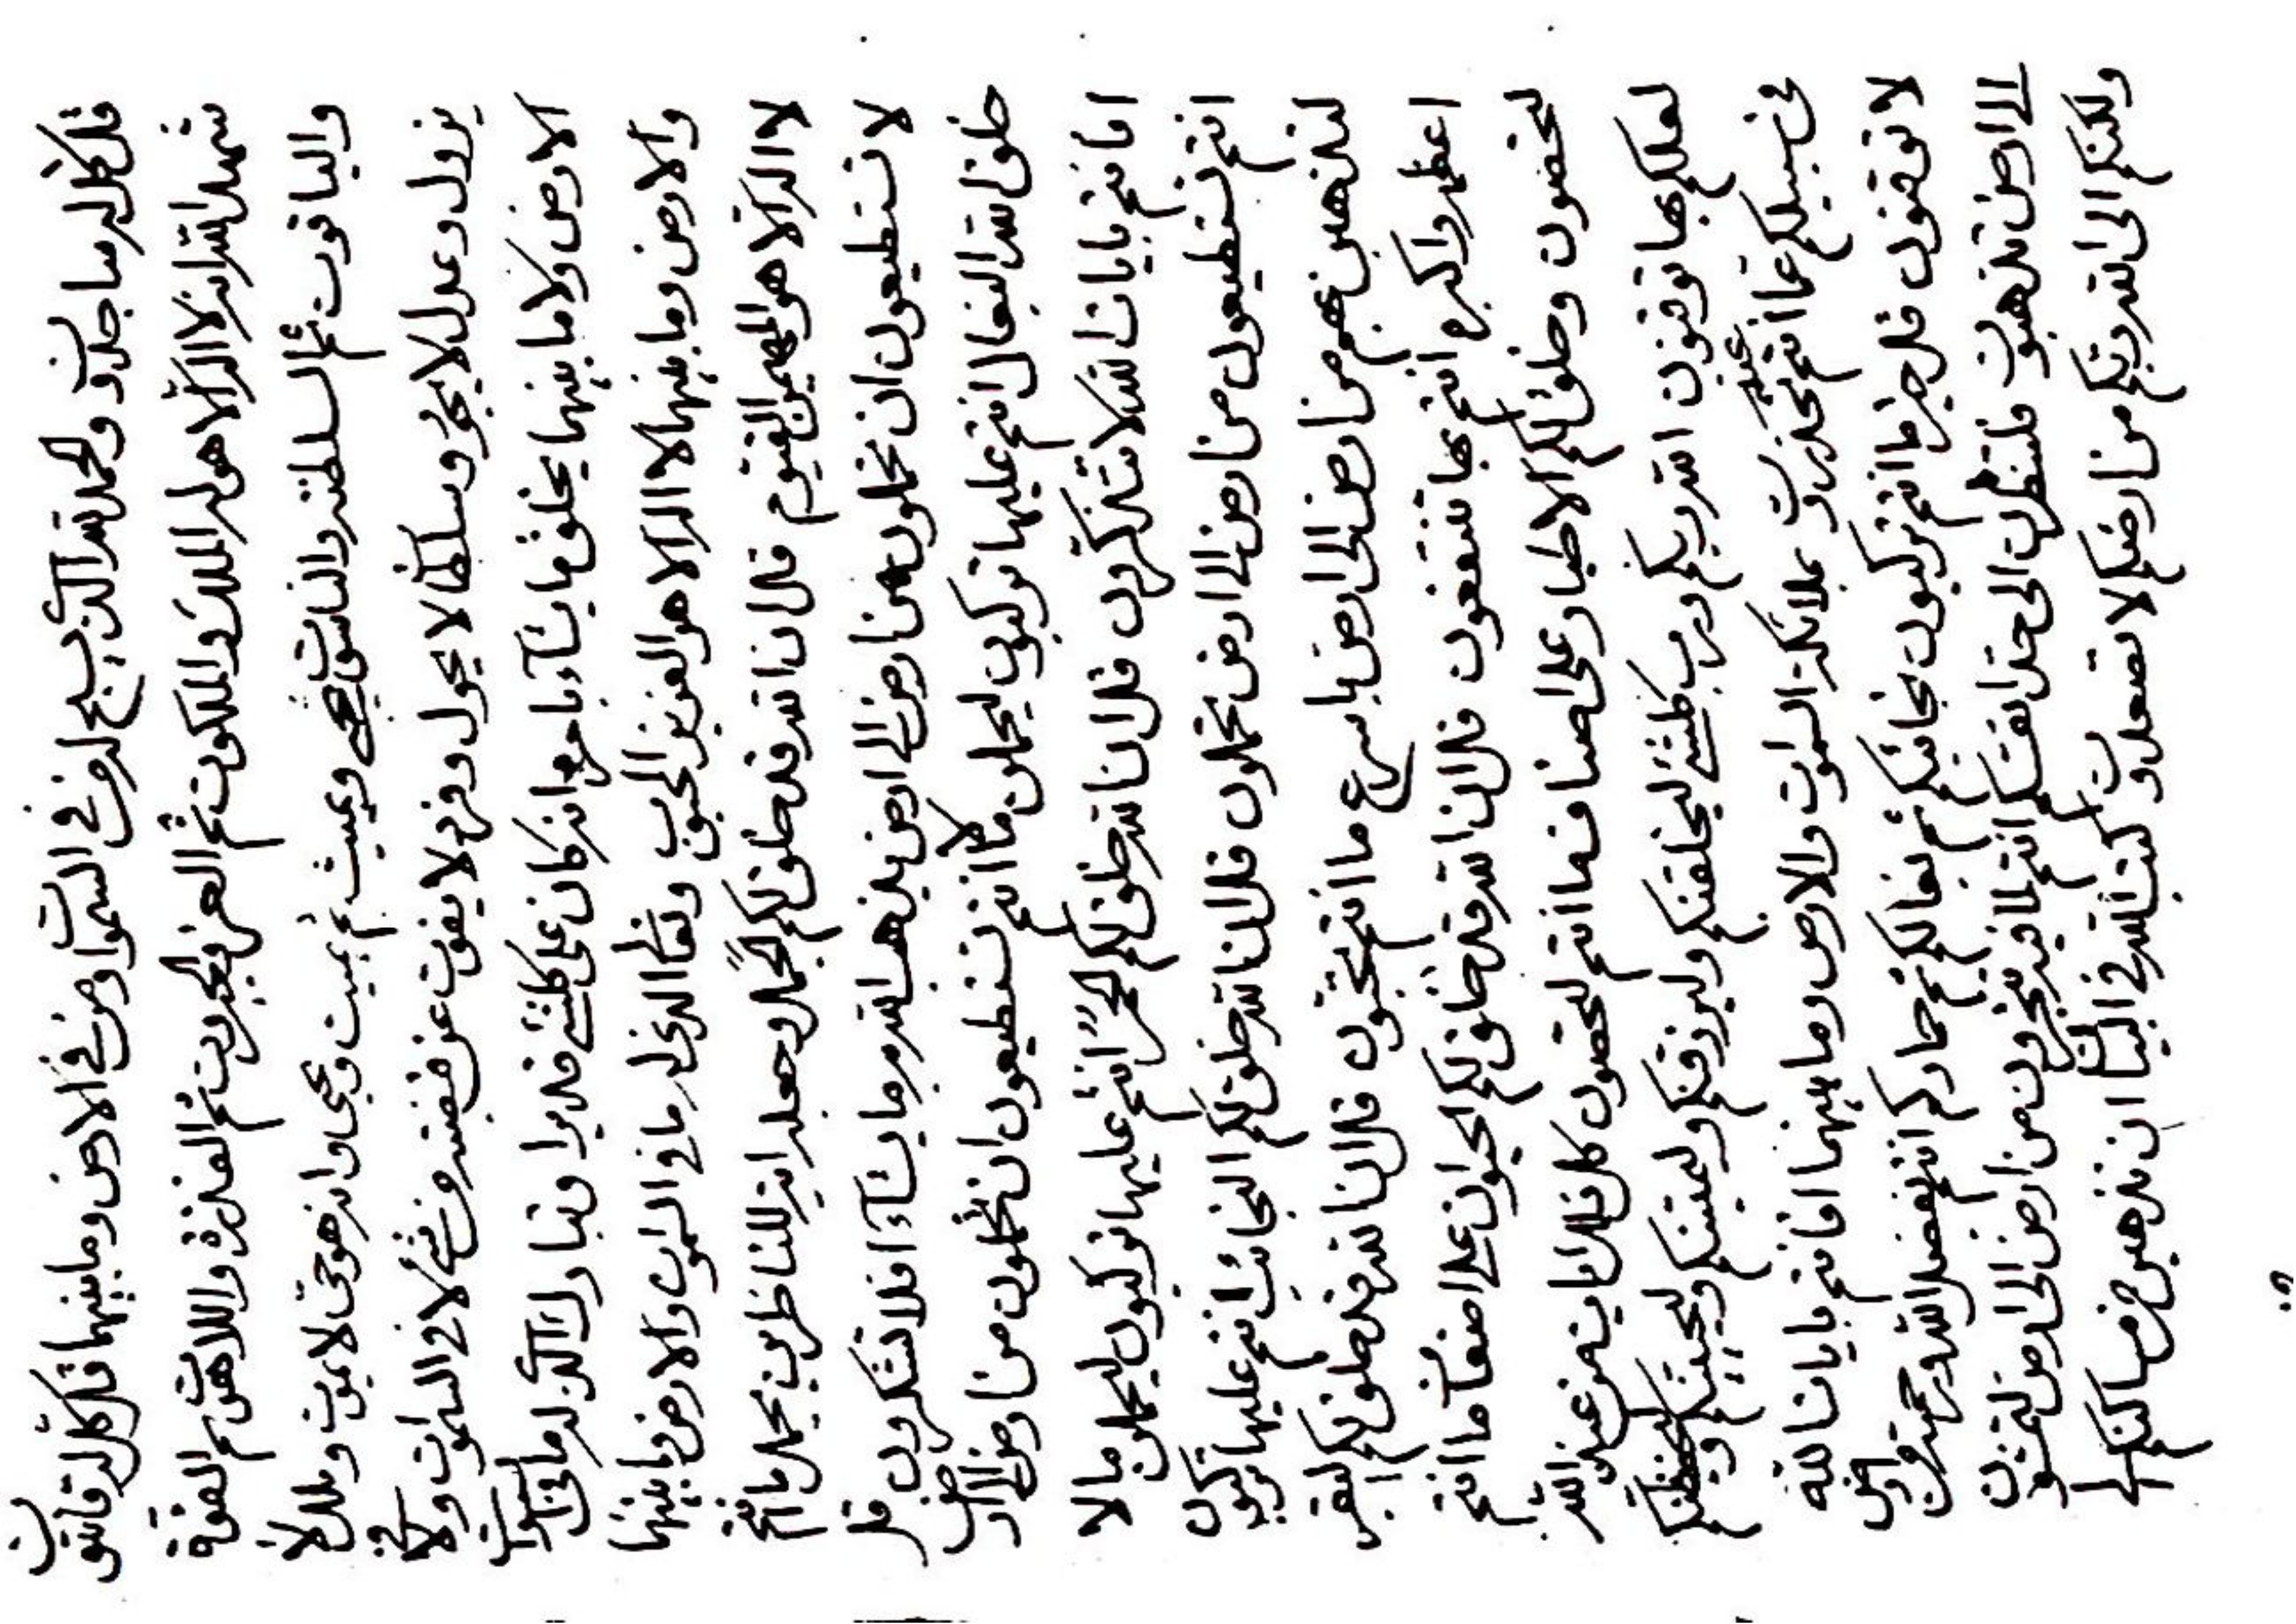 قل كل له ساجدون والحمد لله الذي يسبح له من في السموات ومن في الارض وما بينهما قل كل له قانتون
شهد الله انه لا اله الا هو له الملك والملكوت ثم العز والجبروت ثم القدرة واللاهوت ثم القوة
والياقوت ثم السلطنة والناسوت يحيي ويميت ثم يميت ويحيي وانه هو حي لا يموت وملك لا
يزول وعدل لا يجور وسلطان لا يحول وفرد لا يفوت عن قبضته من شئ لا في السموات ولا في
الارض ولا ما بينهما يخلق ما يشآء بامره انه كان على كلشئ قديرا وتبارك الذي له ما في السموات
والارض وما بينهما لا اله الا هو العزيز المحبوب وتعالى الذي له ما في السموات والارض وما بينهما
لا اله الا هو المهيمن القيوم قل ان الله قد خلق لكم الجمل وجعله اية للناظرين يحمل ما انتم
لا تستطيعون ان تحملون من ارض الى ارض يذهب الله به ما يشآء افلا تشكرون قل
خلق الله البغال انتم عليها تركبون ليحملن ما انتم لا تستطيعون ان تحملون من ارض الى ارض
افانتم بايات الله لا تتذكرون قل ان الله خلق لكم الحمر انتم عليها تركبون ليحملن ما لا
انتم تستطيعون من ارض الى ارض تحملون قل ان الله خلق لكم النجائب انتم عليها تركبون
لتذهبن بهم من ارض الى ارض باسرع ما انتم تحبون قل ان الله قد خلق لكم البقر
اعظم واكبره انتم بها تنتفعون قل ان الله قد خلق لكم الحيوان على اصناف ما انتم
لتحضون وخلق لكم الاطيار على اصناف ما انتم لتحصون كل تلك ايات من عند الله
لعلكم بها توقنون الله ربكم ورب كلشئ ليخلقنكم وليرزقنكم وليميتنكم وليحيينكم وليحفظنكم
في سبيلكم عما انتم عنه تحذرون بملائكة السموات والارض وما بينهما افانتم بايات الله
لا توقنون قل خير ما انتم تركبون نجائبكم ثم بغالكم ثم حماركم انتم بفضل الله ورحمته من ارض
الى ارض تذهبون فلتنظرن الى حد انفسكم انتم لما فيه تتجرون من ارض الى ارض لتمشون
ولكنكم الى الله ربكم من ارضكم لا تصعدون كتب الله في البيان ان تذهبن من مساكنكم الى